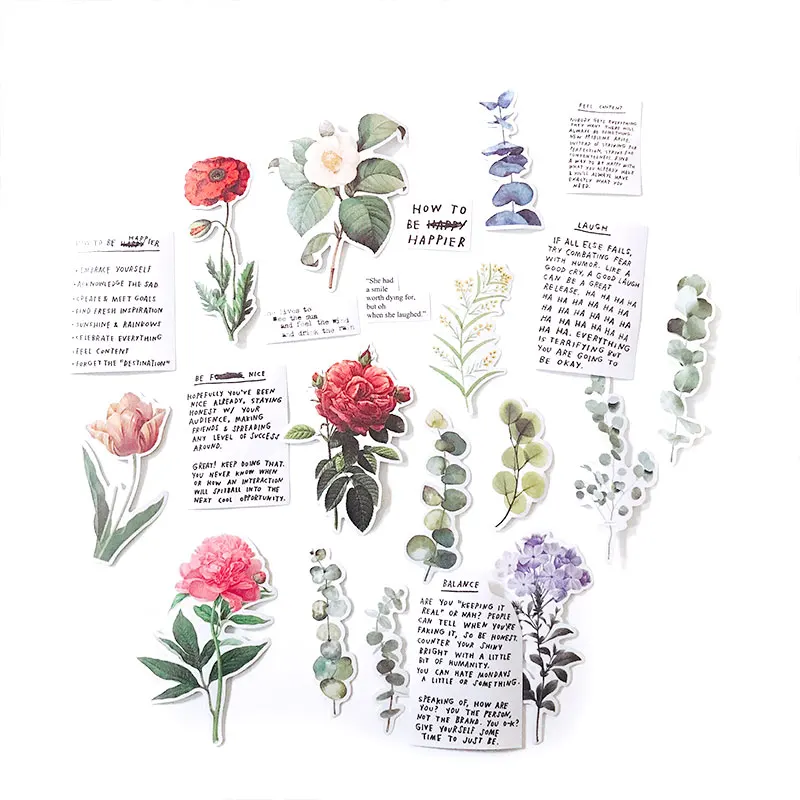 FEEL CONTENT
NOBODY GETS EVERYTHING
THEY WANT. THERE WILL
ALWAYS BE SOMETHING.
NEW PROBLEMS ARISE.
INSTEAD OF STRIVING FOR
PERFECTION, STRIVE FOR
CONTENTEDNESS. FIND
A WAY TO BE HAPPY WITH
WHAT YOU ALREADY HAVE
& YOU'LL ALWAYS HAVE
EXACTLY WHAT YOU
NEED.
HOW TO
BE HAPPY
HAPPIER
HOW TO BE HAPPY HAPPIER
• EMBRACE YOURSELF
• ACKNOWLEDGE THE SAD
• CREATE & MEET GOALS
• FIND FRESH INSPIRATION
• SUNSHINE & RAINBOWS
• CELEBRATE EVERYTHING
• FEEL CONTENT
• FORGET THE "DESTINATION"
LAUGH
IF ALL ELSE FAILS,
TRY COMBATING FEAR
WITH HUMOR. LIKE A
GOOD CRY, A GOOD LAUGH
CAN BE A GREAT
RELEASE. HA HA HA HA
HA HA HA HA HA HA HA
HA HA HA HA HA HA
HA HA HA HA HA HA
HA HA. EVERYTHING
IS TERRIFYING BUT
YOU ARE GOING TO
BE OKAY.
"She had
a smile
worth dying for,
but oh
when she laughed."
lives to
see the sun
and feel the wind
and drink the rain
BE NICE
HOPEFULLY YOU'VE BEEN
NICE ALREADY, STAYING
HONEST W/ YOUR
AUDIENCE, MAKING
FRIENDS & SPREADING
ANY LEVEL OF SUCCESS
AROUND.
GREAT! KEEP DOING THAT.
YOU NEVER KNOW WHEN
OR HOW AN INTERACTION
WILL SPITBALL INTO THE
NEXT COOL OPPORTUNITY.
BALANCE
ARE YOU "KEEPING IT
REAL" OR NAH? PEOPLE
CAN TELL WHEN YOU'RE
FAKING IT, SO BE HONEST.
COUNTER YOUR SHINY
BRIGHT WITH A LITTLE
BIT OF HUMANITY.
YOU CAN HATE MONDAYS
A LITTLE OR SOMETHING.
SPEAKING OF, HOW ARE
YOU? YOU THE PERSON,
NOT THE BRAND. YOU O-K?
GIVE YOURSELF SOME
TIME TO JUST BE.